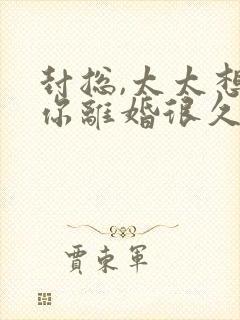 封总,太太想
你離婚很久
賈東軍